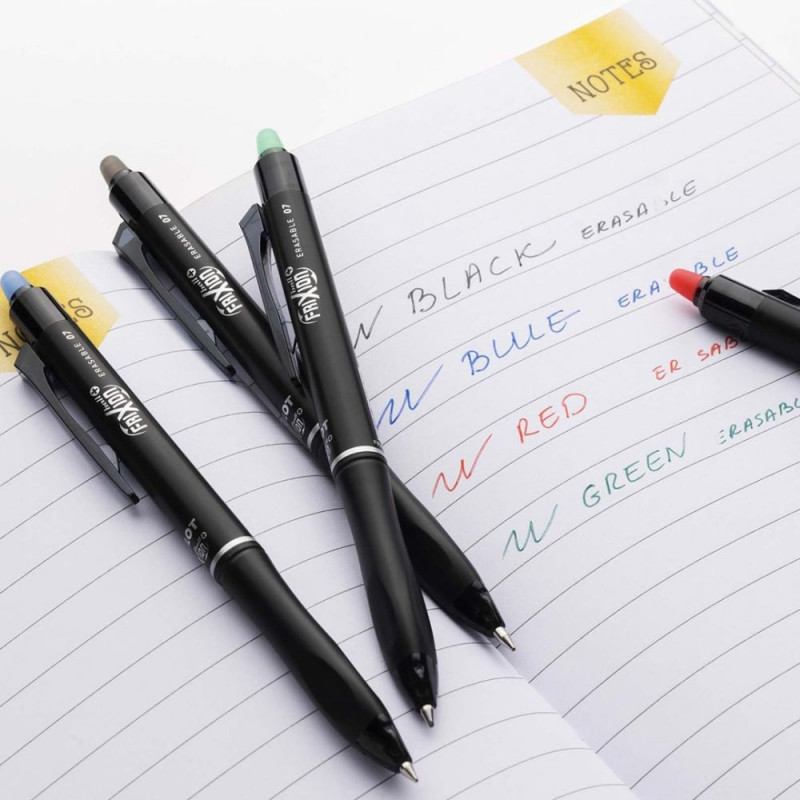 NOTES
BLACK ERASA LE
BLUE ERA BLE
RED ER SAB
GREEN ERASABL
NO S
FRIXION ball+ ERASABLE 07
OT
FRIXION ball+ ERASABLE 07
OT
FRIXION ball+ ERASABLE 07